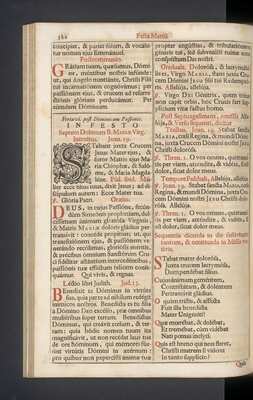 382 Festa Martii
concipiet, & pariet filium, & vocabi-
tur nomen ejus Emmanuel.
Postcommunio.
GRatiam tuam, quæsumus, Domi-
ne, mentibus nostris infunde:
ut, qui Angelo nuntiante, Christi Filii
tui incarnationem cognovimus; per
passionem ejus, & crucem ad resurre-
ctionis gloriam perducamur. Per
eundem Dominum.
Feria vi. post Dominicam Passionis.
IN FESTO
Septem Dolorum B. Mariæ Virg.
Introitus. Joan. 19.
STabant juxta Crucem
Jesu Mater ejus, &
soror Matris ejus Ma-
ria Cleophæ, & Salo-
me, & Maria Magda-
lene. Mulier
ecce filius tuus, dixit Jesus; ad di-
scipulum autem: Ecce Mater tua.
℣. Gloria Patri. Oratio.
DEUS, in cujus Passione, secun-
dum Simeonis prophetiam, dul-
cissimam animam gloriosæ Virginis,
& Matris MARIÆ doloris gladius per-
transivit: concede propitius; ut, qui
transfixionem ejus, & passionem ve-
nerando recolimus, gloriosis meritis,
& precibus omnium Sanctorum Cru-
ci fideliter astantium intercedentibus,
passionis tuæ effectum felicem conse-
quamur. Qui vivis, & regnas.
Lectio libri Judith. Jud. 13.
BEnedixit te Dominus in virtute
sua, quia per te ad nihilum redegit
inimicos nostros. Benedicta es tu filia
à Domino Deo excelso, præ omnibus
mulieribus super terram. Benedictus
Dominus, qui creavit cœlum, & ter-
ram: quia hodie nomen tuum ita
magnificavit, ut non recedat laus tua
de ore hominum, qui memores fue-
rint virtutis Domini in æternum:
pro quibus non pepercisti animæ tuæ
propter angustias, & tribulationem
generis tui, sed subvenisti ruinæ ante
conspectum Dei nostri.
Graduale. Dolorosa, & lacrymabi-
lis es, Virgo MARIA, stans juxta Cru-
cem Domini Jesu Filii tui Redem-
ptoris.
℣. Virgo Dei Genitrix, quem totus
non capit orbis, hoc Crucis fert sup-
plicium vitæ factus homo.
Stabat sancta
MARIA, cœli Regina, & mundi Domi-
na, juxta Crucem Domini nostri Jesu
Christi dolorosa.
℣. Thren. 1. O vos omnes, qui transi-
tis per viam, attendite, & videte, si est
dolor, sicut dolor meus.
Tempore Paschali, Alleluia, alleluia.
℣. Joan. 19. Stabat sancta MARIA, cœli
Regina, & mundi Domina, juxta Cru-
cem Domini nostri Jesu Christi dolo-
rosa. Alleluia.
℣. Thren. 1. O vos omnes, qui transi-
tis per viam, attendite, & videte, si
est dolor, sicut dolor meus.
Sequentia
STabat mater dolorosa,
Juxta crucem lacrymosa,
Dum pendebat filius.
Cujus animam gementem,
Contristatam, & dolentem
Pertransivit gladius.
O quàm tristis, & afflicta
Fuit illa benedicta
Mater Unigeniti!
Quæ mœrebat, & dolebat,
Et tremebat, cùm videbat
Nati pœnas inclyti.
Quis est homo qui non fleret,
Christi matrem si videret
In tanto supplicio?